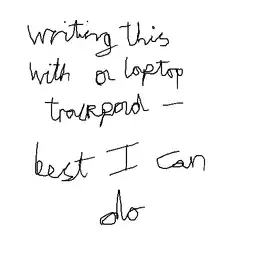 writing this
with a laptop
trackpad —
best I can
do